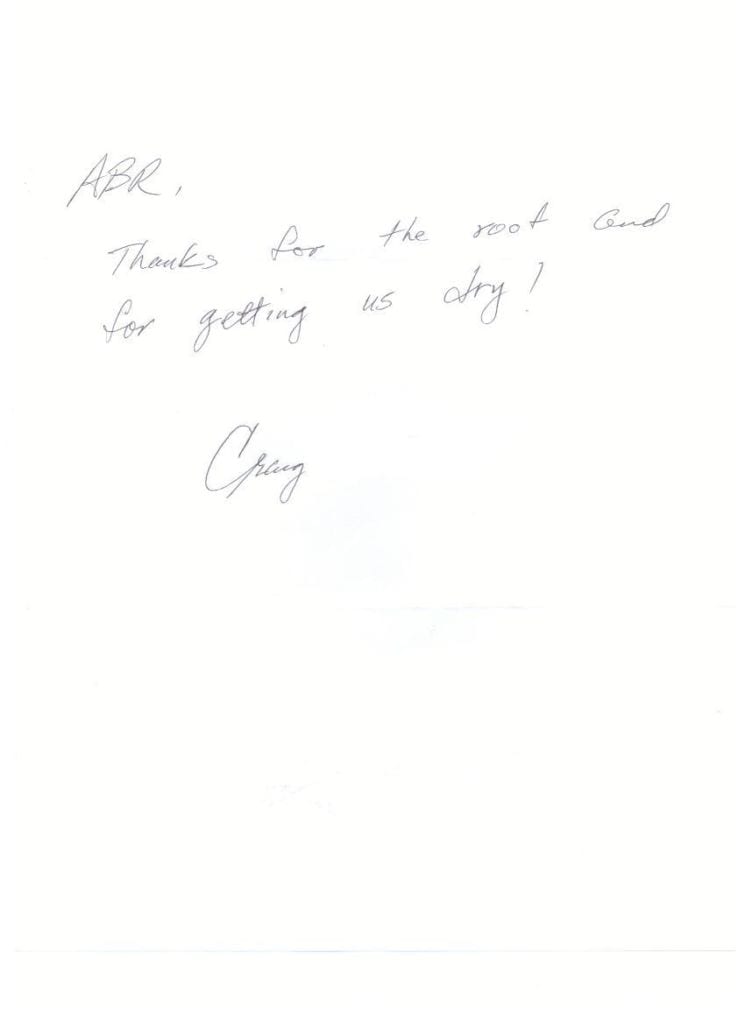 ABR,
Thanks for the roof and
for getting us dry!
Craig